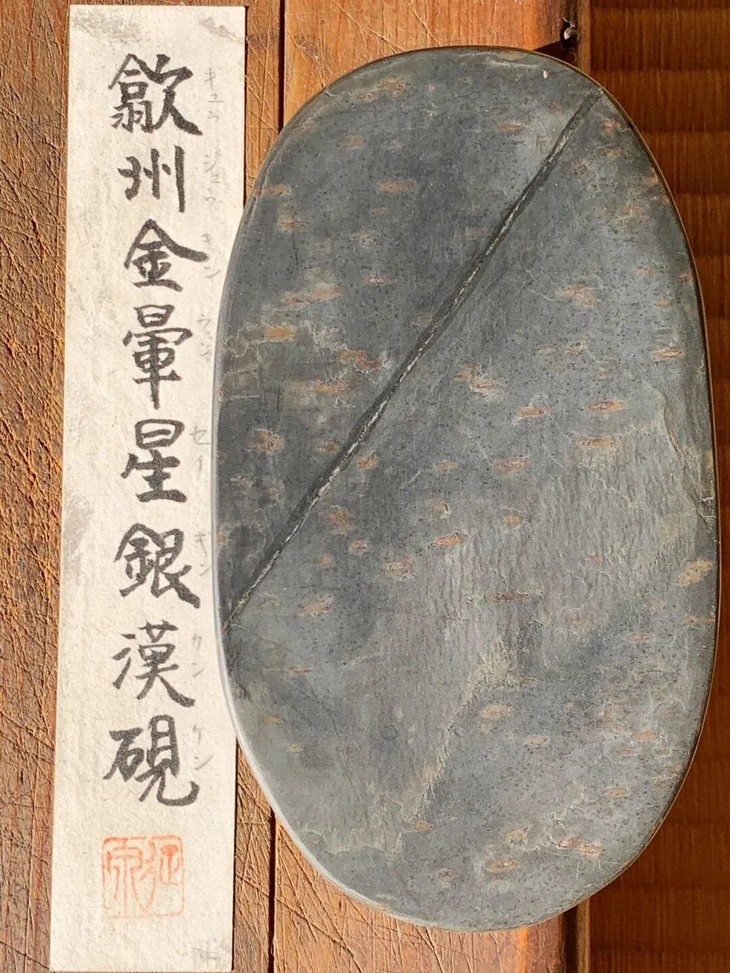 歙州金暈星銀漢硯
キュウ ジュウ キン ウン セイ ギン カン ケン